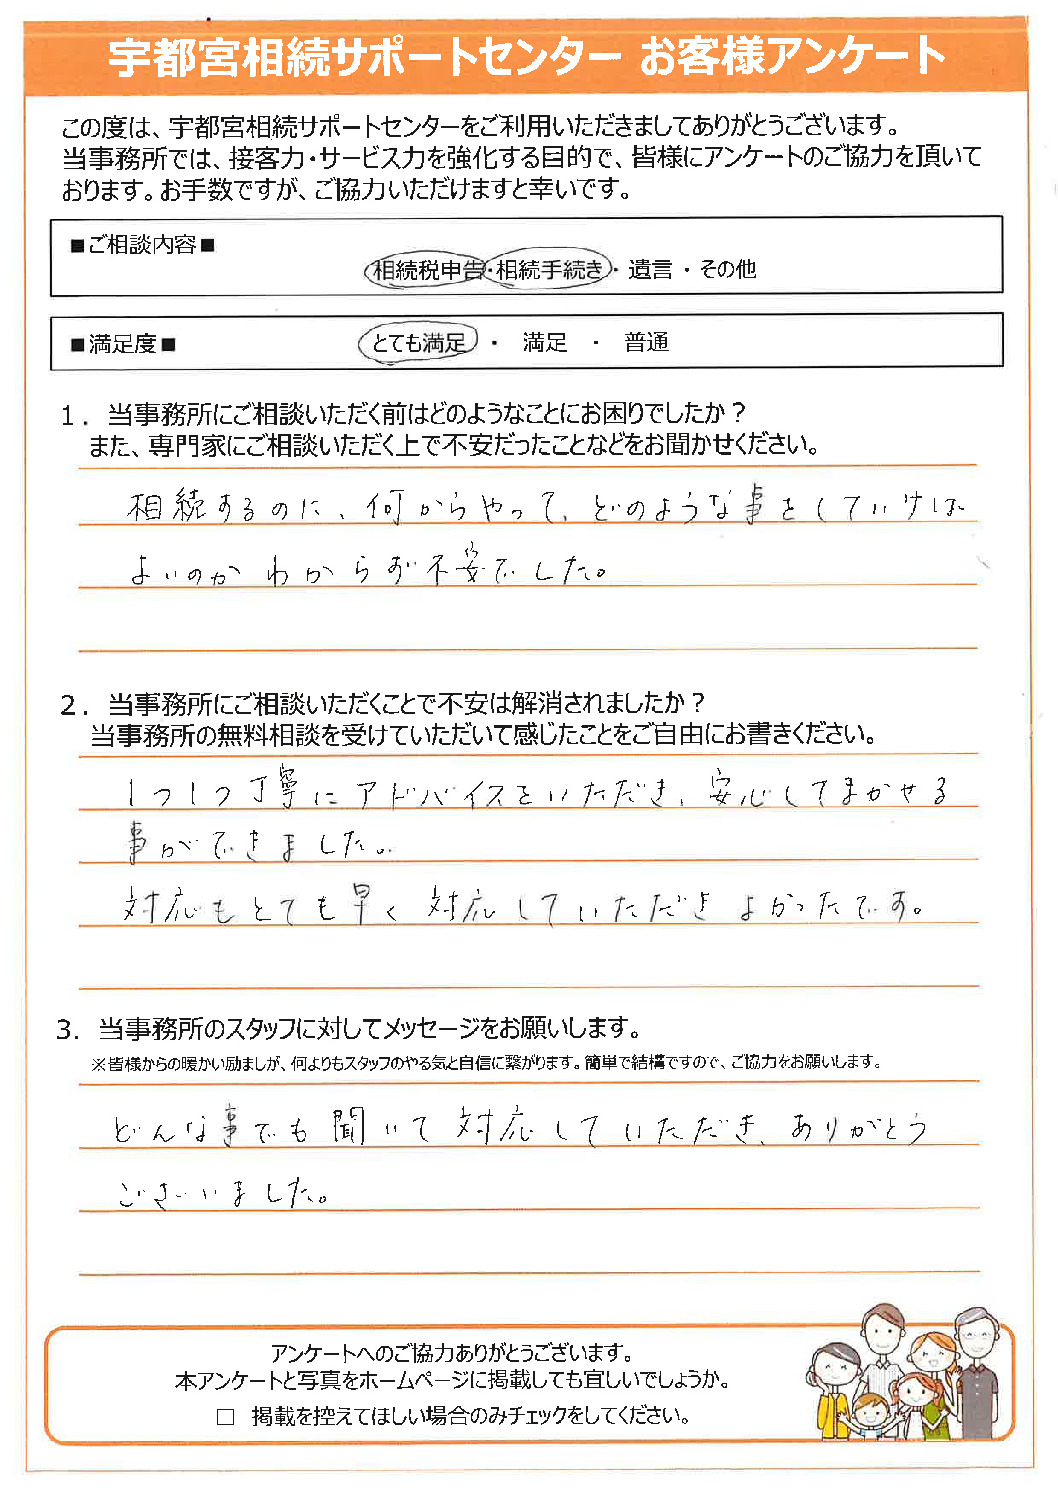 宇都宮相続サポートセンター お客様アンケート
この度は、宇都宮相続サポートセンターをご利用いただきましてありがとうございます。
当事務所では、接客力・サービス力を強化する目的で、皆様にアンケートのご協力を頂いて
おります。お手数ですが、ご協力いただけますと幸いです。
■ご相談内容■
相続税申告・相続手続き・ 遺言 ・ その他
■満足度■ とても満足 ・ 満足 ・ 普通
１．当事務所にご相談いただく前はどのようなことにお困りでしたか？
また、専門家にご相談いただく上で不安だったことなどをお聞かせください。
相続するのに、何からやって、どのような事をしていけば
よいのかわからず不安でした。
２．当事務所にご相談いただくことで不安は解消されましたか？
当事務所の無料相談を受けていただいて感じたことをご自由にお書きください。
1つ1つ丁寧にアドバイスをいただき、安心してまかせる
事ができました。
対応もとても早く対応していただきよかったです。
3．当事務所のスタッフに対してメッセージをお願いします。
※皆様からの暖かい励ましが、何よりもスタッフのやる気と自信に繋がります。簡単で結構ですので、ご協力をお願いします。
どんな事でも聞いて対応していただき、ありがとう
ございました。
アンケートへのご協力ありがとうございます。
本アンケートと写真をホームページに掲載しても宜しいでしょうか。
□ 掲載を控えてほしい場合のみチェックをしてください。